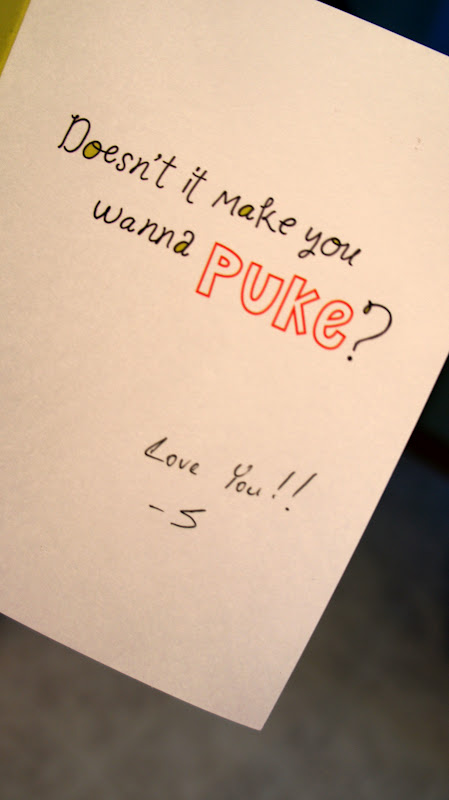 Doesn't it make you
wanna PUKe?
Love You!!
- S